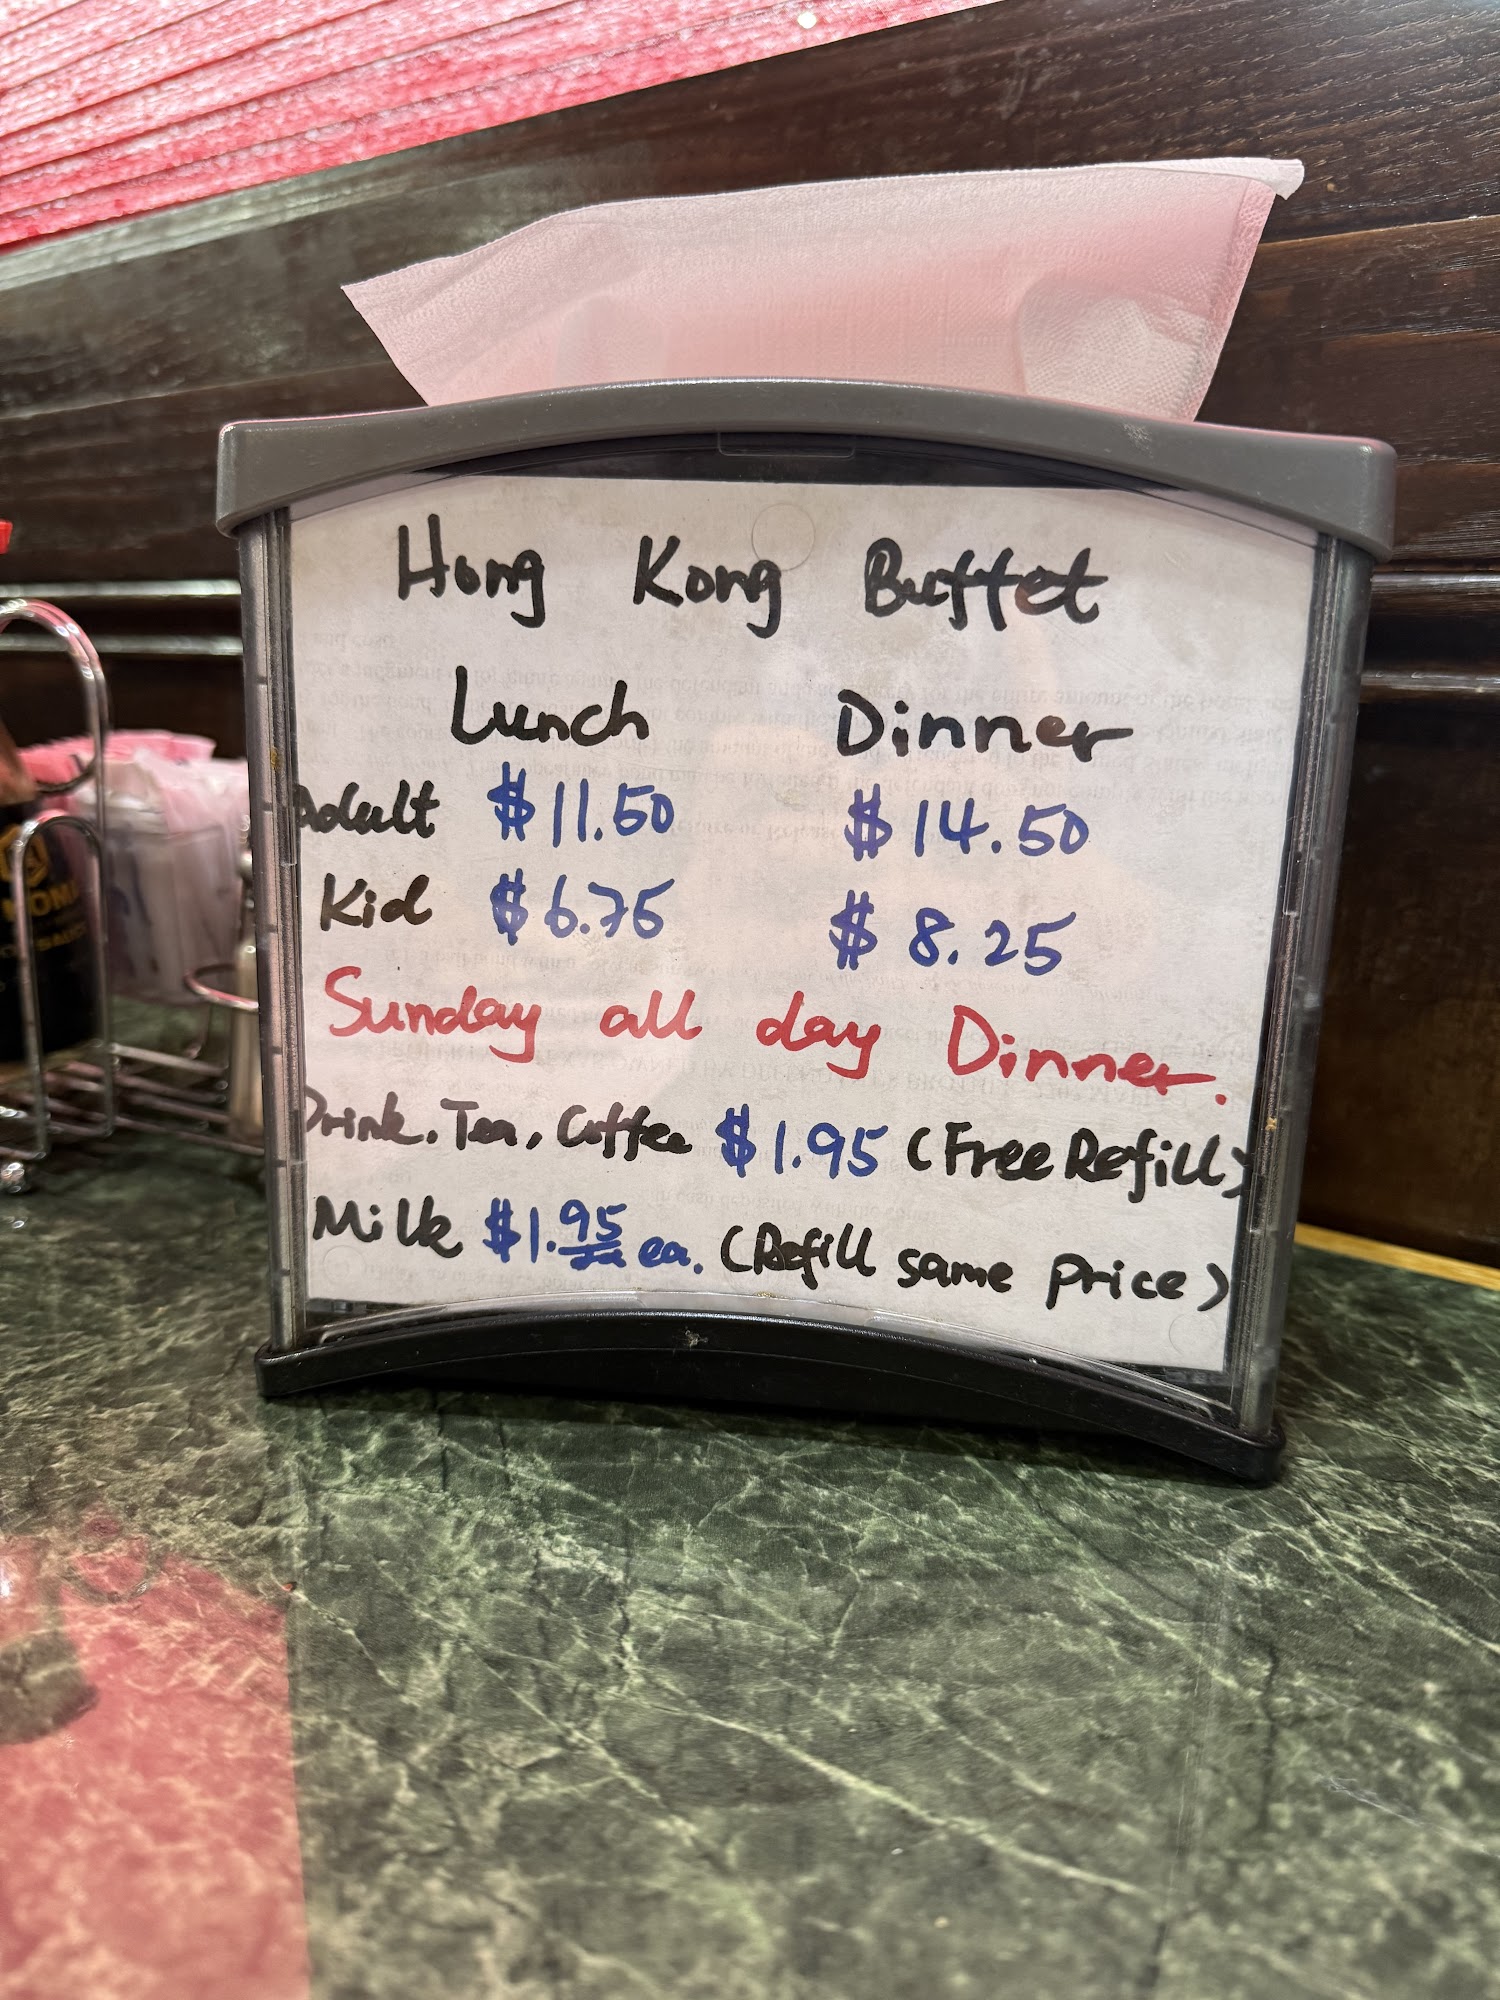 Hong Kong Buffet
Lunch Dinner
Adult $11.50 $14.50
Kid $6.75 $8.25
Sunday all day Dinner.
Drink, Tea, Coffee $1.95 (Free Refill)
Milk $1.95 ea. (Refill same price)